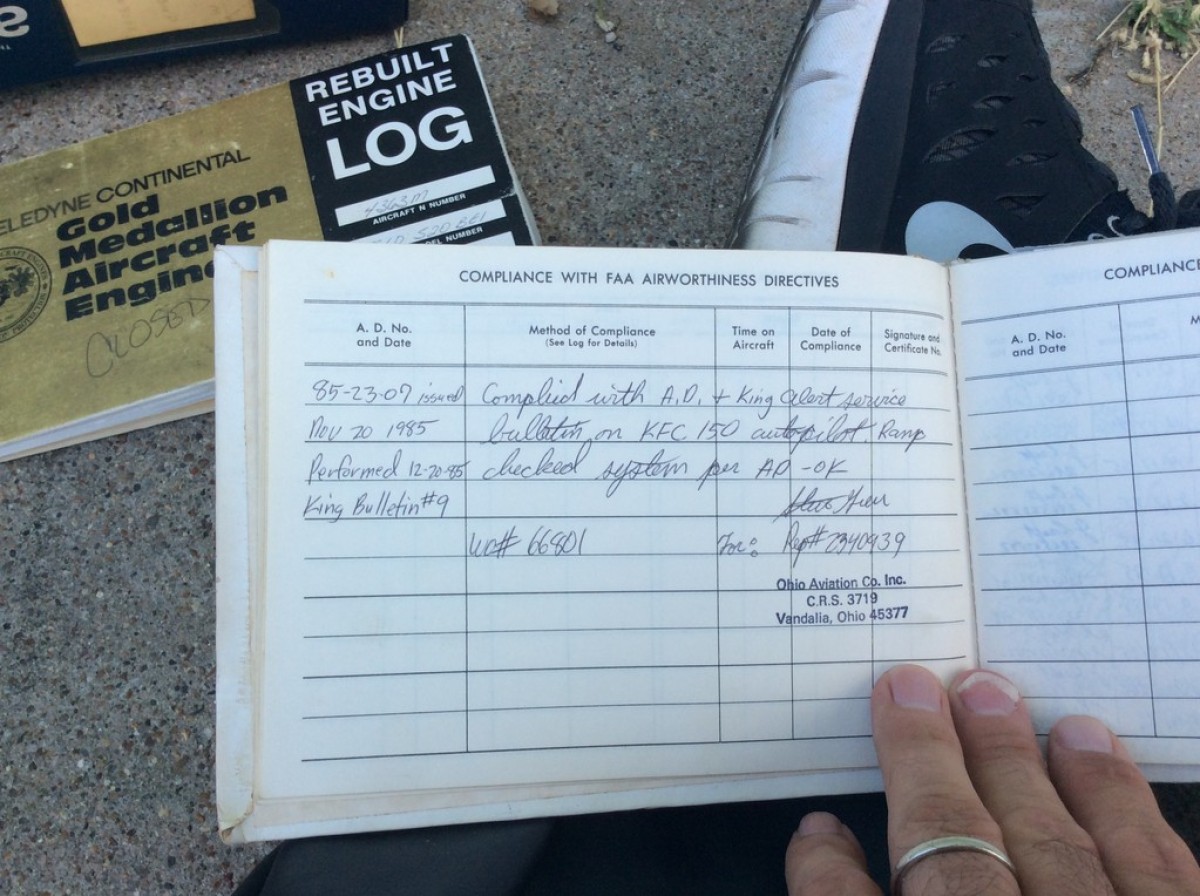 REBUILT
ENGINE
LOG
AIRCRAFT N NUMBER
TELEDYNE CONTINENTAL
Gold
Medallion
Aircraft
Engine
CLOSED
COMPLIANCE WITH FAA AIRWORTHINESS DIRECTIVES
A. D. No. and Date
Method of Compliance (See Log for Details)
Time on Aircraft
Date of Compliance
Signature and Certificate No.
85-23-07 issued Complied with A.D. + King Alert service
Nov 20 1985 bulletin on KFC 150 autopilot. Ramp
Performed 12-20-85 checked system per AD -OK
King Bulletin #9
WO# 66801 For: Rep# 2340939
Ohio Aviation Co. Inc.
C.R.S. 3719
Vandalia, Ohio 45377
COMPLIANCE
A. D. No. and Date